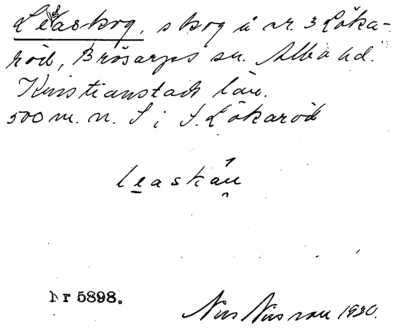 Leaskog, skog å nr. 3 Löka-
röd, Brösarps sn. Albo hd.
Kristianstads län.
500 m. n. S i S. Lökaröd
leaskåu
Nr 5898.
Nils Nilsson 1930.